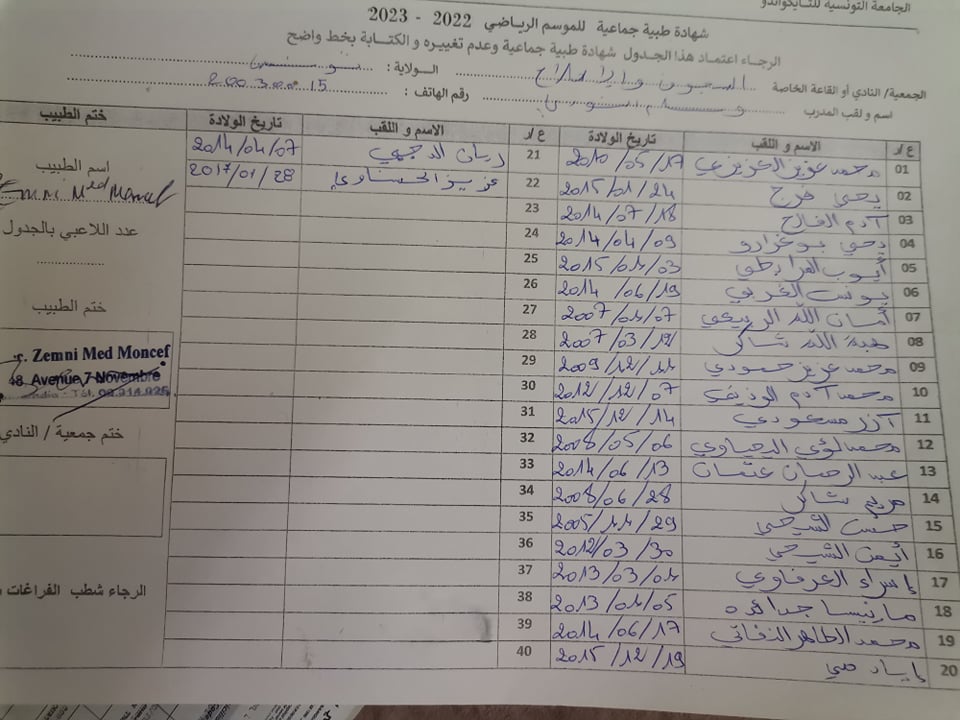 الجامعة التونسية للتايكواندو
شهادة طبية جماعية للموسم الرياضي 2022 - 2023
الرجاء اعتماد هذا الجدول شهادة طبية جماعية وعدم تغييره و الكتابة بخط واضح
الجمعية/ النادي أو القاعة الخاصة
الولاية : تونس
اسم و لقب المدرب
رقم الهاتف :
ع/ر الاسم و اللقب تاريخ الولادة
01 محمد عزيز العزيزي 2010/05/17
02 يحي فرح 2015/01/24
03 آدم الفالح 2014/07/18
04 يحي بوغزارو 2014/04/09
05 أيوب 2015/01/03
06 يونس الغربي 2014/06/19
07 أمان الله الربيعي 2007/01/07
08 هبة الله شاكر 2007/03/12
09 محمد عزيز حمودي 2009/12/11
10 محمد آدم 2012/12/07
11 مسعودي 2015/12/14
12 محمد لؤي اليحياوي 2008/05/06
13 عبد الرحمان عثمان 2014/06/13
14 مريم شاكر 2008/06/28
15 الشيحي 2005/11/29
16 أيمن الشيحي 2012/03/30
17 إسراء العرفاوي 2013/03/01
18 مارنيسا 2013/01/05
19 محمد الطاهر 2014/06/17
20 إياد 2015/12/19
ع/ر الاسم و اللقب تاريخ الولادة
21 ريان 2014/04/07
22 عزيز الحسناوي 2017/01/28
23
24
25
26
27
28
29
30
31
32
33
34
35
36
37
38
39
40
ختم الطبيب
اسم الطبيب
Zemni Med Moncef
عدد اللاعبي بالجدول
..............
ختم الطبيب
Zemni Med Moncef
Avenue 7 Novembre
ختم جمعية / النادي
الرجاء شطب الفراغات